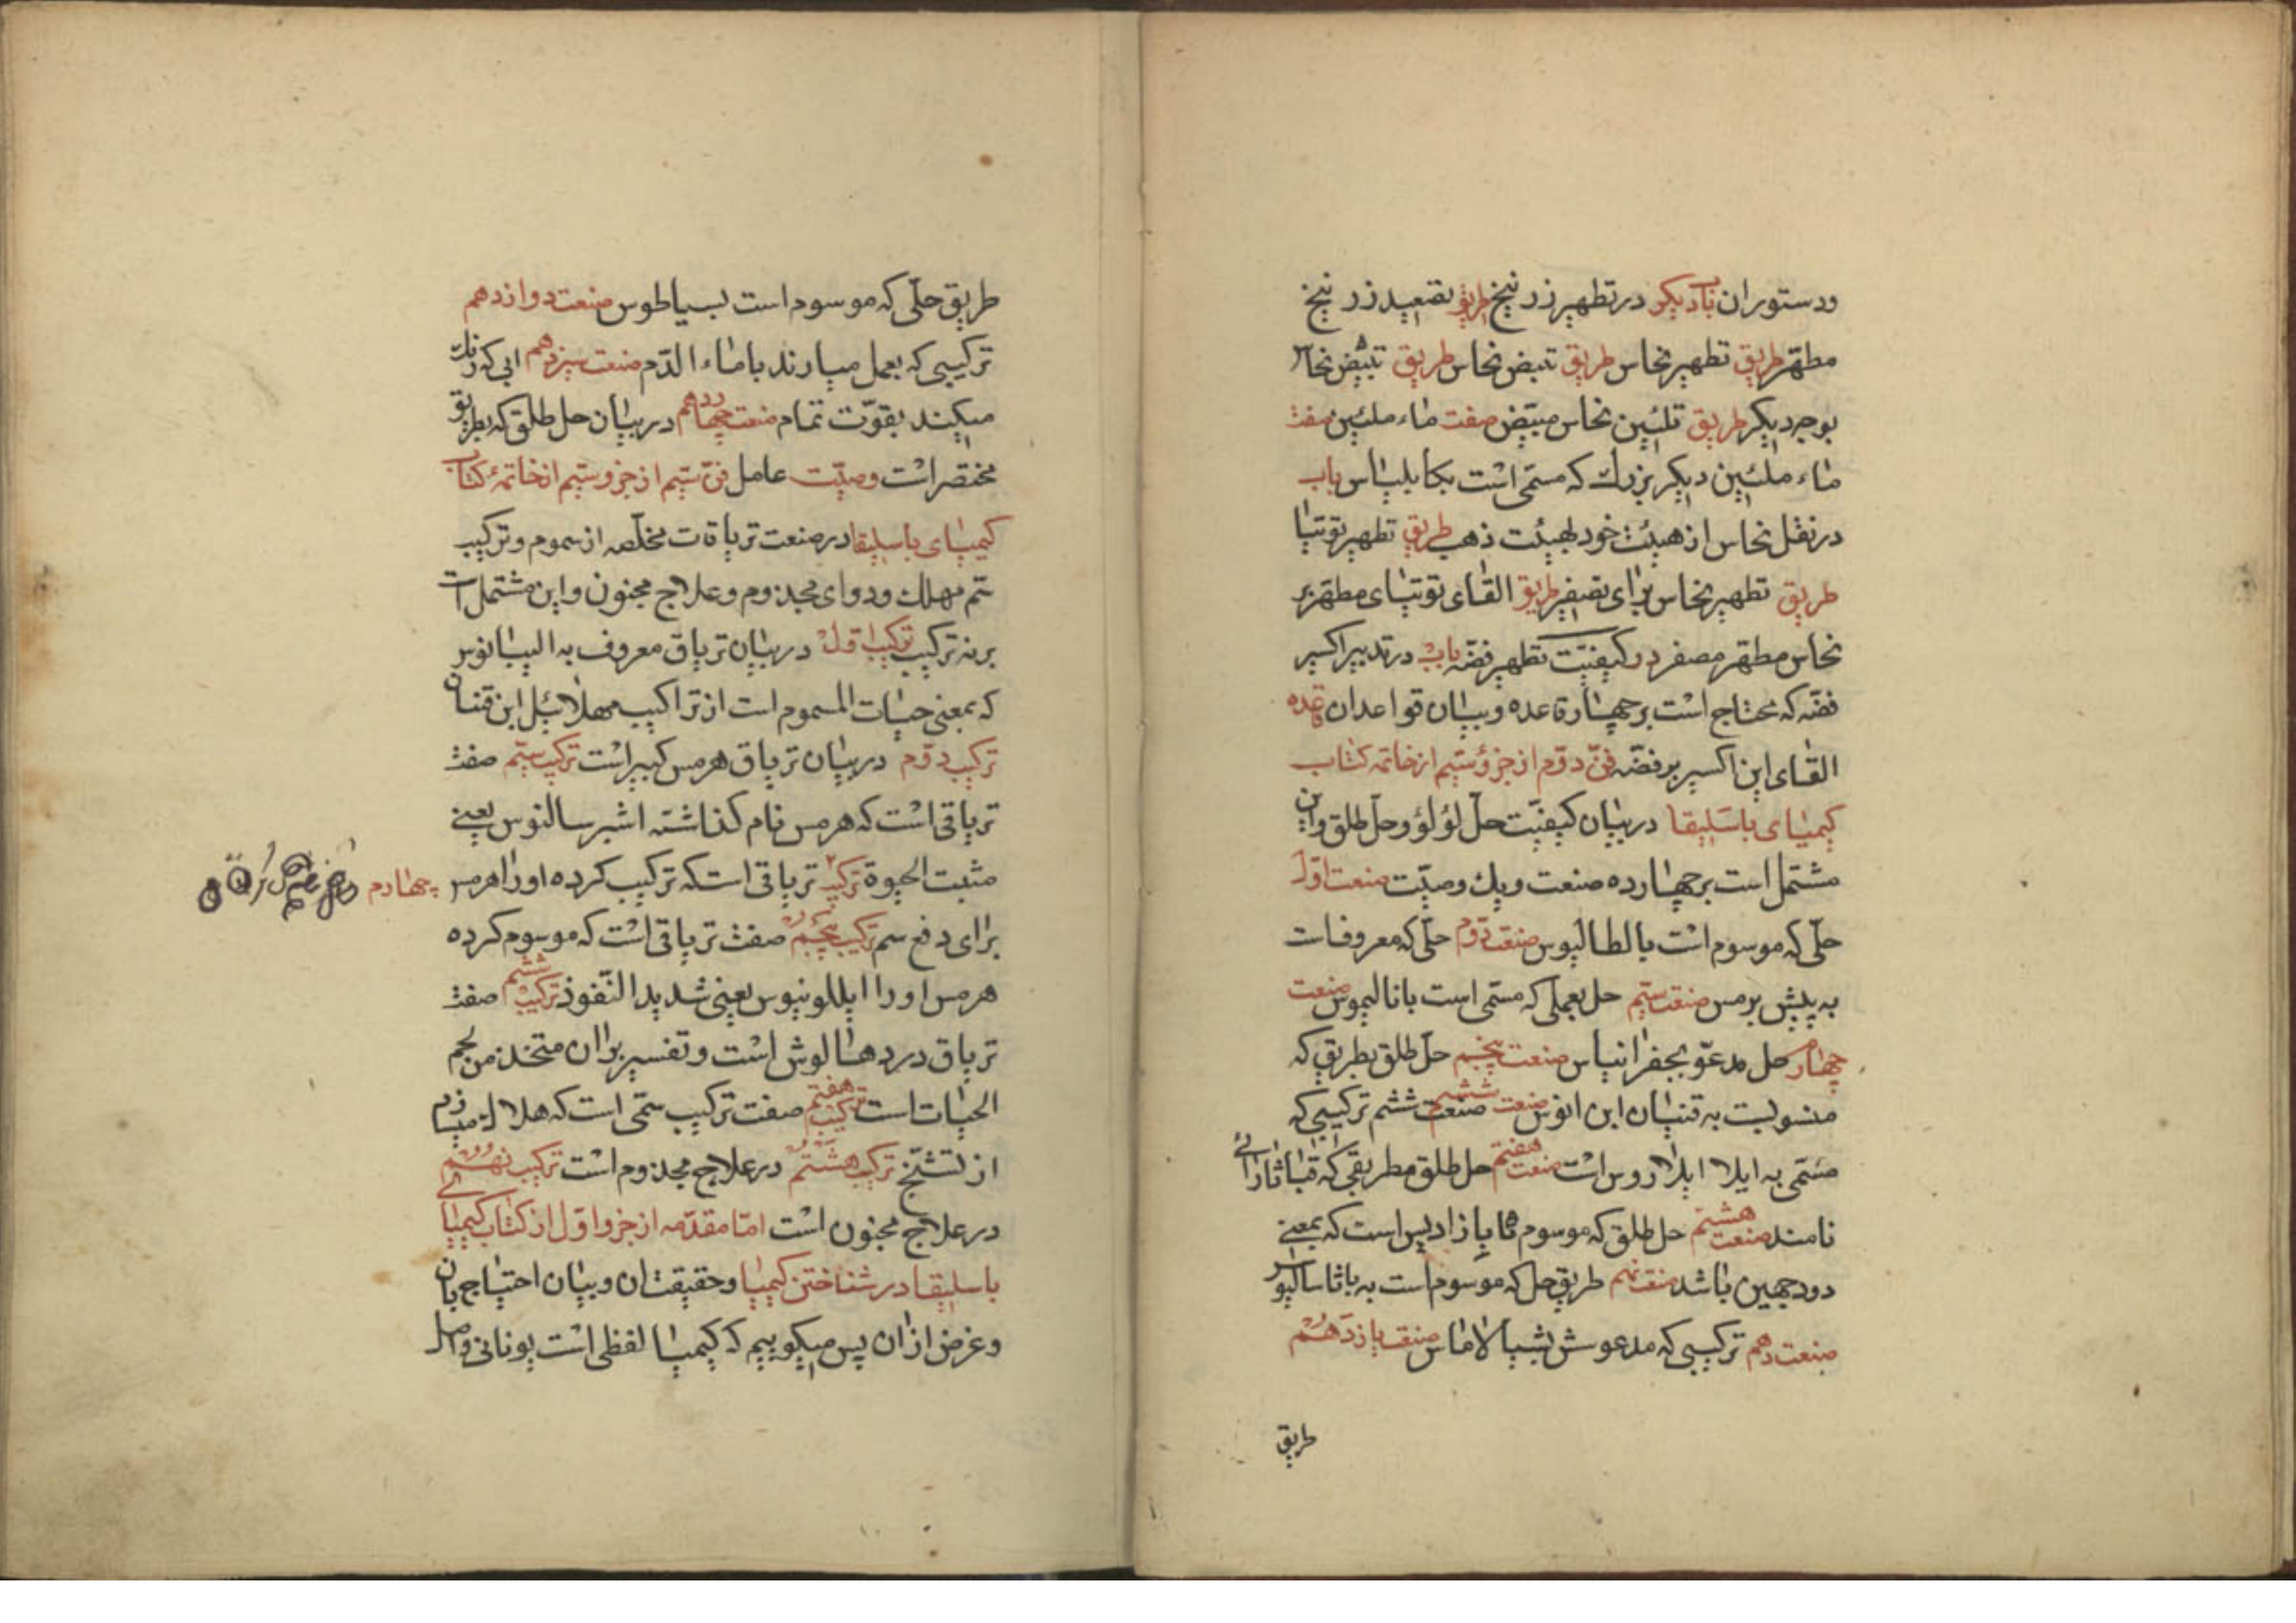 ودستوران باب دیکر در تطهیر زرنیخ طریق تصعید زرنیخ
مطهّر طریق تطهیر نحاس طریق تبیض نحاس طریق تبیّض نحاس
بوجه دیکر طریق تلئین نحاس مبیّض صفت ماء ملئین صفت
ماء ملئین دیکر بزرك که مسمّی است بکا بلیاس باب
در نقل نحاس از هیئت خود بهیئت ذهب طریق تطهیر توتیا
طریق تطهیر نحاس برای تصیفر طریق القای توتیای مطهّر بر
نحاس مطهّر مصفر در کیفیّت تطهیر فضّه باب در تدبیر اکسیر
فضّه که محتاج است بر چهار قاعده وبیان قواعد ان قاعده
القای این اکسیر بر فضّه فنّ دوّم از جزؤ سیّم از خاتمه کتاب
کیمیای باسلیقا در بیان کیفیّت حلّ لؤلؤ وحلّ طلق واین
مشتمل است بر چهارده صنعت ویك وصیّت صنعت اوّل
حلّی که موسوم است بالطالیوس صنعت دوّم حلّی که معروفست
به پیش برمس صنعت سیّم حل بعملی که مسمّی است بانالیموس صنعت
چهارم حل مدعوّ بجفرانیاس صنعت پنجم حلّ طلق بطریق که
منسوبست به قنیان ابن انوس صنعت ششم صنعت ششم ترکیبی که
مسمّی به ایلا ایلاروس است صنعت هفتم حل طلق مطریقی که
نامند صنعت هشتم حل طلق که موسوم ادیس است که بمعنی
دودجهین باشد صنعت نهم طریق حل که موسوم است به باثاسالیوس
صنعت دهم ترکیبی که مدعو ش بشیالاماس صنعت یازدهم
طریق
طریق حلّی که موسوم است بسیاطوس صنعت دوازدهم
ترکیبی که بعمل میارند با ماء الدّم صنعت سیزدهم ابی که رنك
میکند بقوّت تمام صنعت چهاردهم در بیان حل طلق که بطریق
مختصر است وصیّت عامل فنّ سیّم از جزو سیّم از خاتمهٔ کتاب
کیمیای باسلیقا در صنعت تریاقات مخلّصه از سموم وترکیب
سّم مهلك ودوای مجذوم وعلاج مجنون واین مشتمل است
بر نه ترکیب ترکیب اوّل در بیان تریاق معروف به الییانوس
که بمعنی حیات المسموم است از تراکیب مهلائیل ابن قنیان
ترکیب دوّم در بیان تریاق هرمس کبیر است ترکیب سیّم صفت
تریاقی است که هرمس نام کذاشته اشبرسالنوس یعنی
مثبت الحیوة ترکیب تریاقی است که ترکیب کرده اورا هرمس
چهارم
برای دفع سم ترکیب پنجم صفت تریاقی است که موسوم کرده
هرمس اورا ایللونیوس یعنی شدید النّفوذ ترکیب ششم صفت
تریاق دردهالوش است وتفسیر بران متخذ من لحم
الحیات است ترکیب هفتم صفت ترکیب سمّی است که هلاك میسازم
از تشنّج ترکیب هشتم در علاج مجذوم است ترکیب نهم
در علاج مجنون است امّا مقدّمه از جزو اوّل از کتاب کیمیای
باسلیقا در شناختن کیمیا وحقیقت ان وبیان احتیاج بان
وغرض ازان پس میکوییم که کیمیا لفظی است یونانی واصل